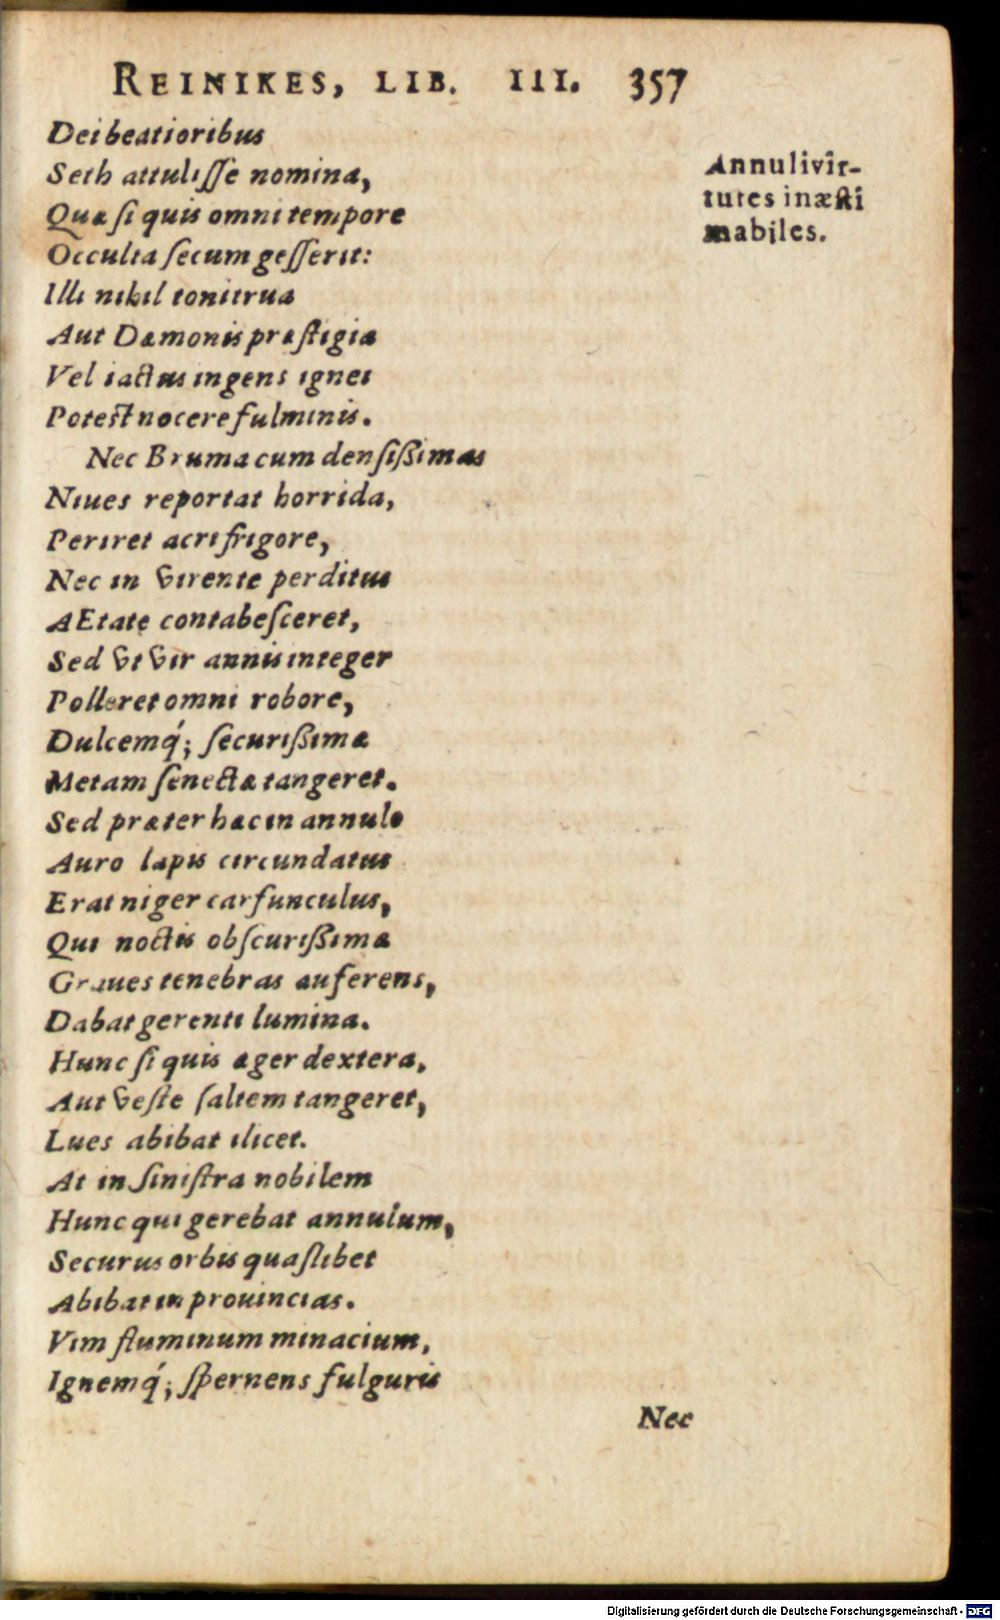 REINIKES, LIB. III. 357
Dei beatioribus
Seth attuliſſe nomina,
Quæ ſi quis omni tempore
Occulta ſecum geſſerit:
Illi nihil tonitrua
Aut Dæmonis præſtigiæ
Vel iactus ingens ignei
Poteſt nocere fulminis.
Nec Bruma cum denſißimas
Niues reportat horrida,
Periret acri frigore,
Nec in virente perditus
AEtate contabeſceret,
Sed vt vir annis integer
Polleret omni robore,
Dulcemq́; ſecurißimæ
Metam ſenectæ tangeret.
Sed præter hæc in annulo
Auro lapis circundatus
Erat niger carfunculus,
Qui noctis obſcurißimæ
Graues tenebras auferens,
Dabat gerenti lumina.
Hunc ſi quis æger dextera,
Aut veſte ſaltem tangeret,
Lues abibat ilicet.
At in ſiniſtra nobilem
Hunc qui gerebat annulum,
Securus orbis quaſlibet
Abibat in prouincias.
Vim fluminum minacium,
Ignemq́; ſpernens fulguris
Nec
Annuli vir-
tutes inæſti
mabiles.
Digitalisierung gefördert durch die Deutsche Forschungsgemeinschaft - DFG